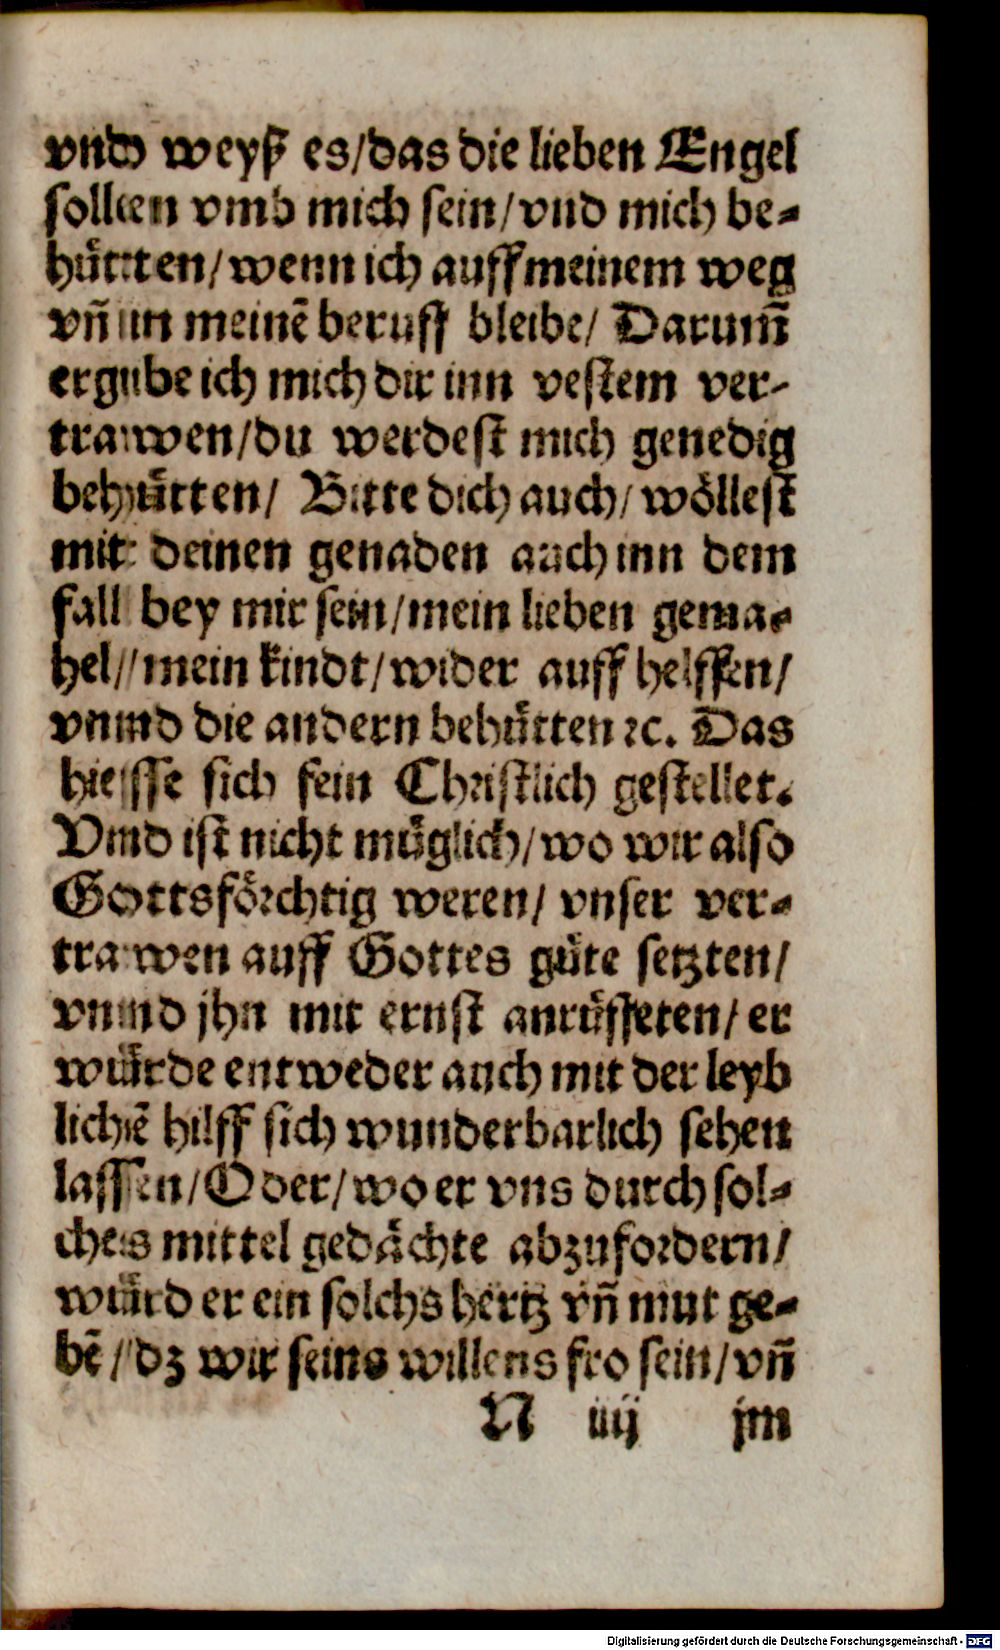 vnd weyß es/das die lieben Engel
sollen vmb mich sein/vnd mich be-
hütten/wenn ich auff meinem weg
vñ in meinē beruff bleibe/ Darum̃
ergibe ich mich dir inn vestem ver-
trawen/du werdest mich genedig
behütten/ Bitte dich auch/wöllest
mit deinen genaden auch inn dem
fall bey mir sein/mein lieben gema-
hel/mein kindt/wider auff helffen/
vnnd die andern behütten ꝛc. Das
hiesse sich fein Christlich gestellet.
Vnd ist nicht müglich/wo wir also
Gottsförchtig weren/ vnser ver-
trawen auff Gottes güte setzten/
vnnd jhn mit ernst anrüffeten/er
würde entweder auch mit der leyb
lichē hilff sich wunderbarlich sehen
lassen/Oder/wo er vns durch sol-
ches mittel gedächte abzufordern/
würd er ein solchs hertz vñ mut ge-
bē/dz wir seins willens fro sein/vñ
N iiij jm
Digitalisierung gefördert durch die Deutsche Forschungsgemeinschaft - DFG